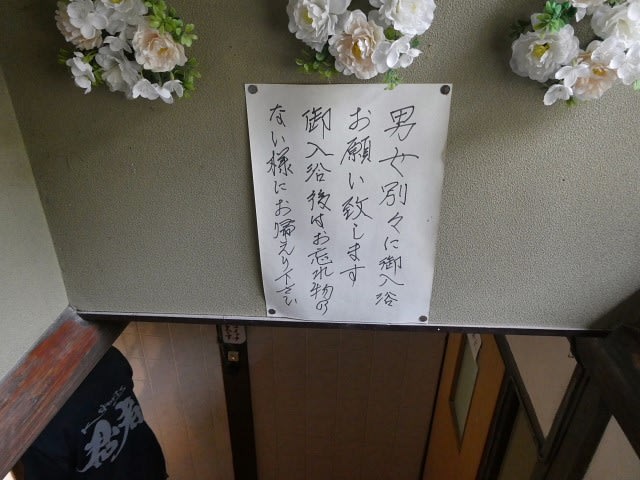 男女別々に御入浴
お願い致します
御入浴後はお忘れ物の
ない様にお帰えり下さい